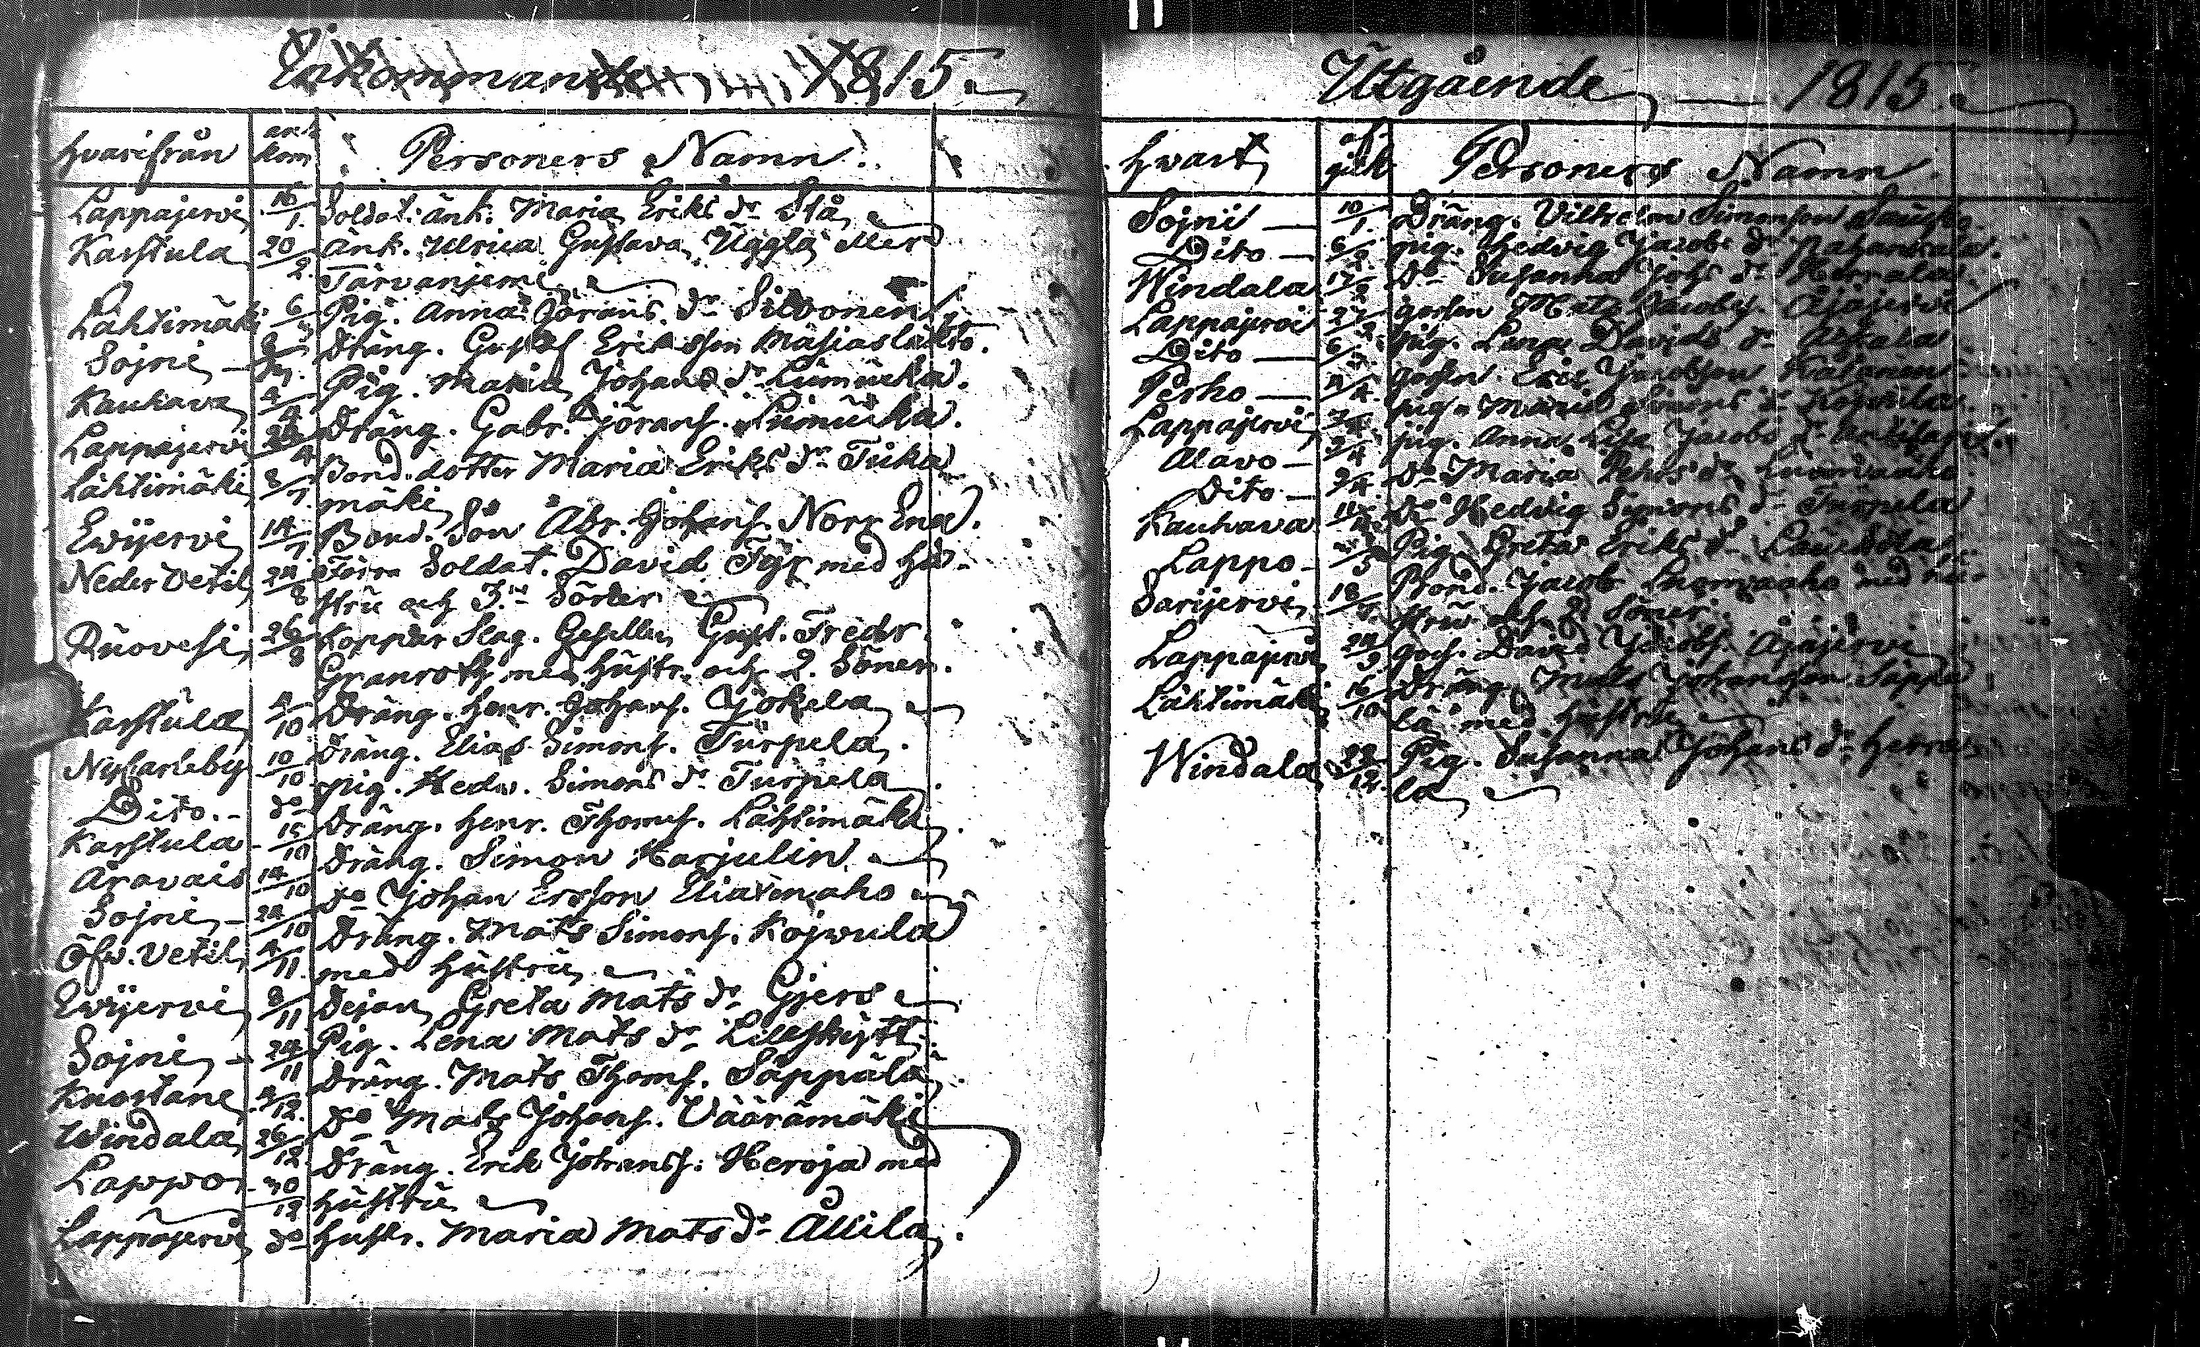 Inkommande 1815.
hvarifrån ank kom Personers Namn.
Lappajervi 16/1. Soldat. änk. Maria Eriks dr Stå
Karstula 20/2. änk. Ulrica Gustava Uggla eller
Tarvanjemi
Lähtimäki 6/3 Pig. Anna Görans dr Silvonen
Sojni Dräng. Gustaf Eriksson Mäsiaslehto.
Kauhava 4/4 Pig. Maria Johans dr Lumucka.
Lappajervi 24/4 Dräng. Gabr. Jörans. Lumucka.
Lähtimäki 8/7. Bond. dotter Maria Eriks dr Tuka
mäki
Ewijervi 14/7 Bond. Son Abr. Johans. Norr Ena.
Neder Vetil 24/8 Förra Soldat. David Fyr med hu-
stru och 3.ne Söner
Ruovesi 26/8 Koppar Slag. Gesellen Gust. Fredr.
Granroth med hustr. och 2. Söner.
Karstula 4/10 Dräng. Henr. Johans. Jokela
Nykarleby 10/10 Dräng. Elias Simons. Turpela.
Dito. do pig. Hedv. Simons dr Turpela
Karstula 15/10 Dräng. Henr. Thomas. Lähtimäki
Aravais 14/10 Dräng. Simon Harjulin
Sojni 24/10 do Johan Ersson Eliasenaho
Öfv. Vetil 4/11 Dräng. Mats Simons. Kojwula
med hustru
Ewijervi 8/11 Dejan Greta Mats dr Gjers
Sojni 24/11 Pig. Lena Mats dr Lilleskytt
Knostane 4/12. Dräng. Mats Thoms. Säppälä
Windala 26/12 do Mats Johans. Väärämäki
Lappo 30/12 Dräng. Erik Johanss. Heroja med
hustru
Lappajervi do hustr. Maria Mats dr Allila.
Utgående 1815.
hvart af gick Personers Namn.
Sojni 10/1. Dräng. Vilhelm Simonson
Dito pig. Hedvig Jacobs dr
Windala do Susanna Johs dr Herrala
Lappajervi gossen Mats Jacobs. Äjäjervi
Dito pig. Lena Davids dr
Perho 4/4 gossen. Eric Jacobson
Lappajervi pig. Maria Simons dr Kojwula
Alavo 9/4 pig. Anna Lisa Jacobs dr
Dito 9/4. do Maria Pehrs dr
Kauhava do Hedvig Simons dr Turpela
Lappo Pig Greta Eriks dr
Sarijervi 18/9 Bond. Jacob med hu-
stru och 2 Söner.
Lappajervi 24/9 gos. David Jacobs. Äjäjervi
Lähtimäki 16/10 Dräng Mats Johansson Säppä
lä med hustru
Windala 22/12. Pig. Susanna Johans dr Herra
la